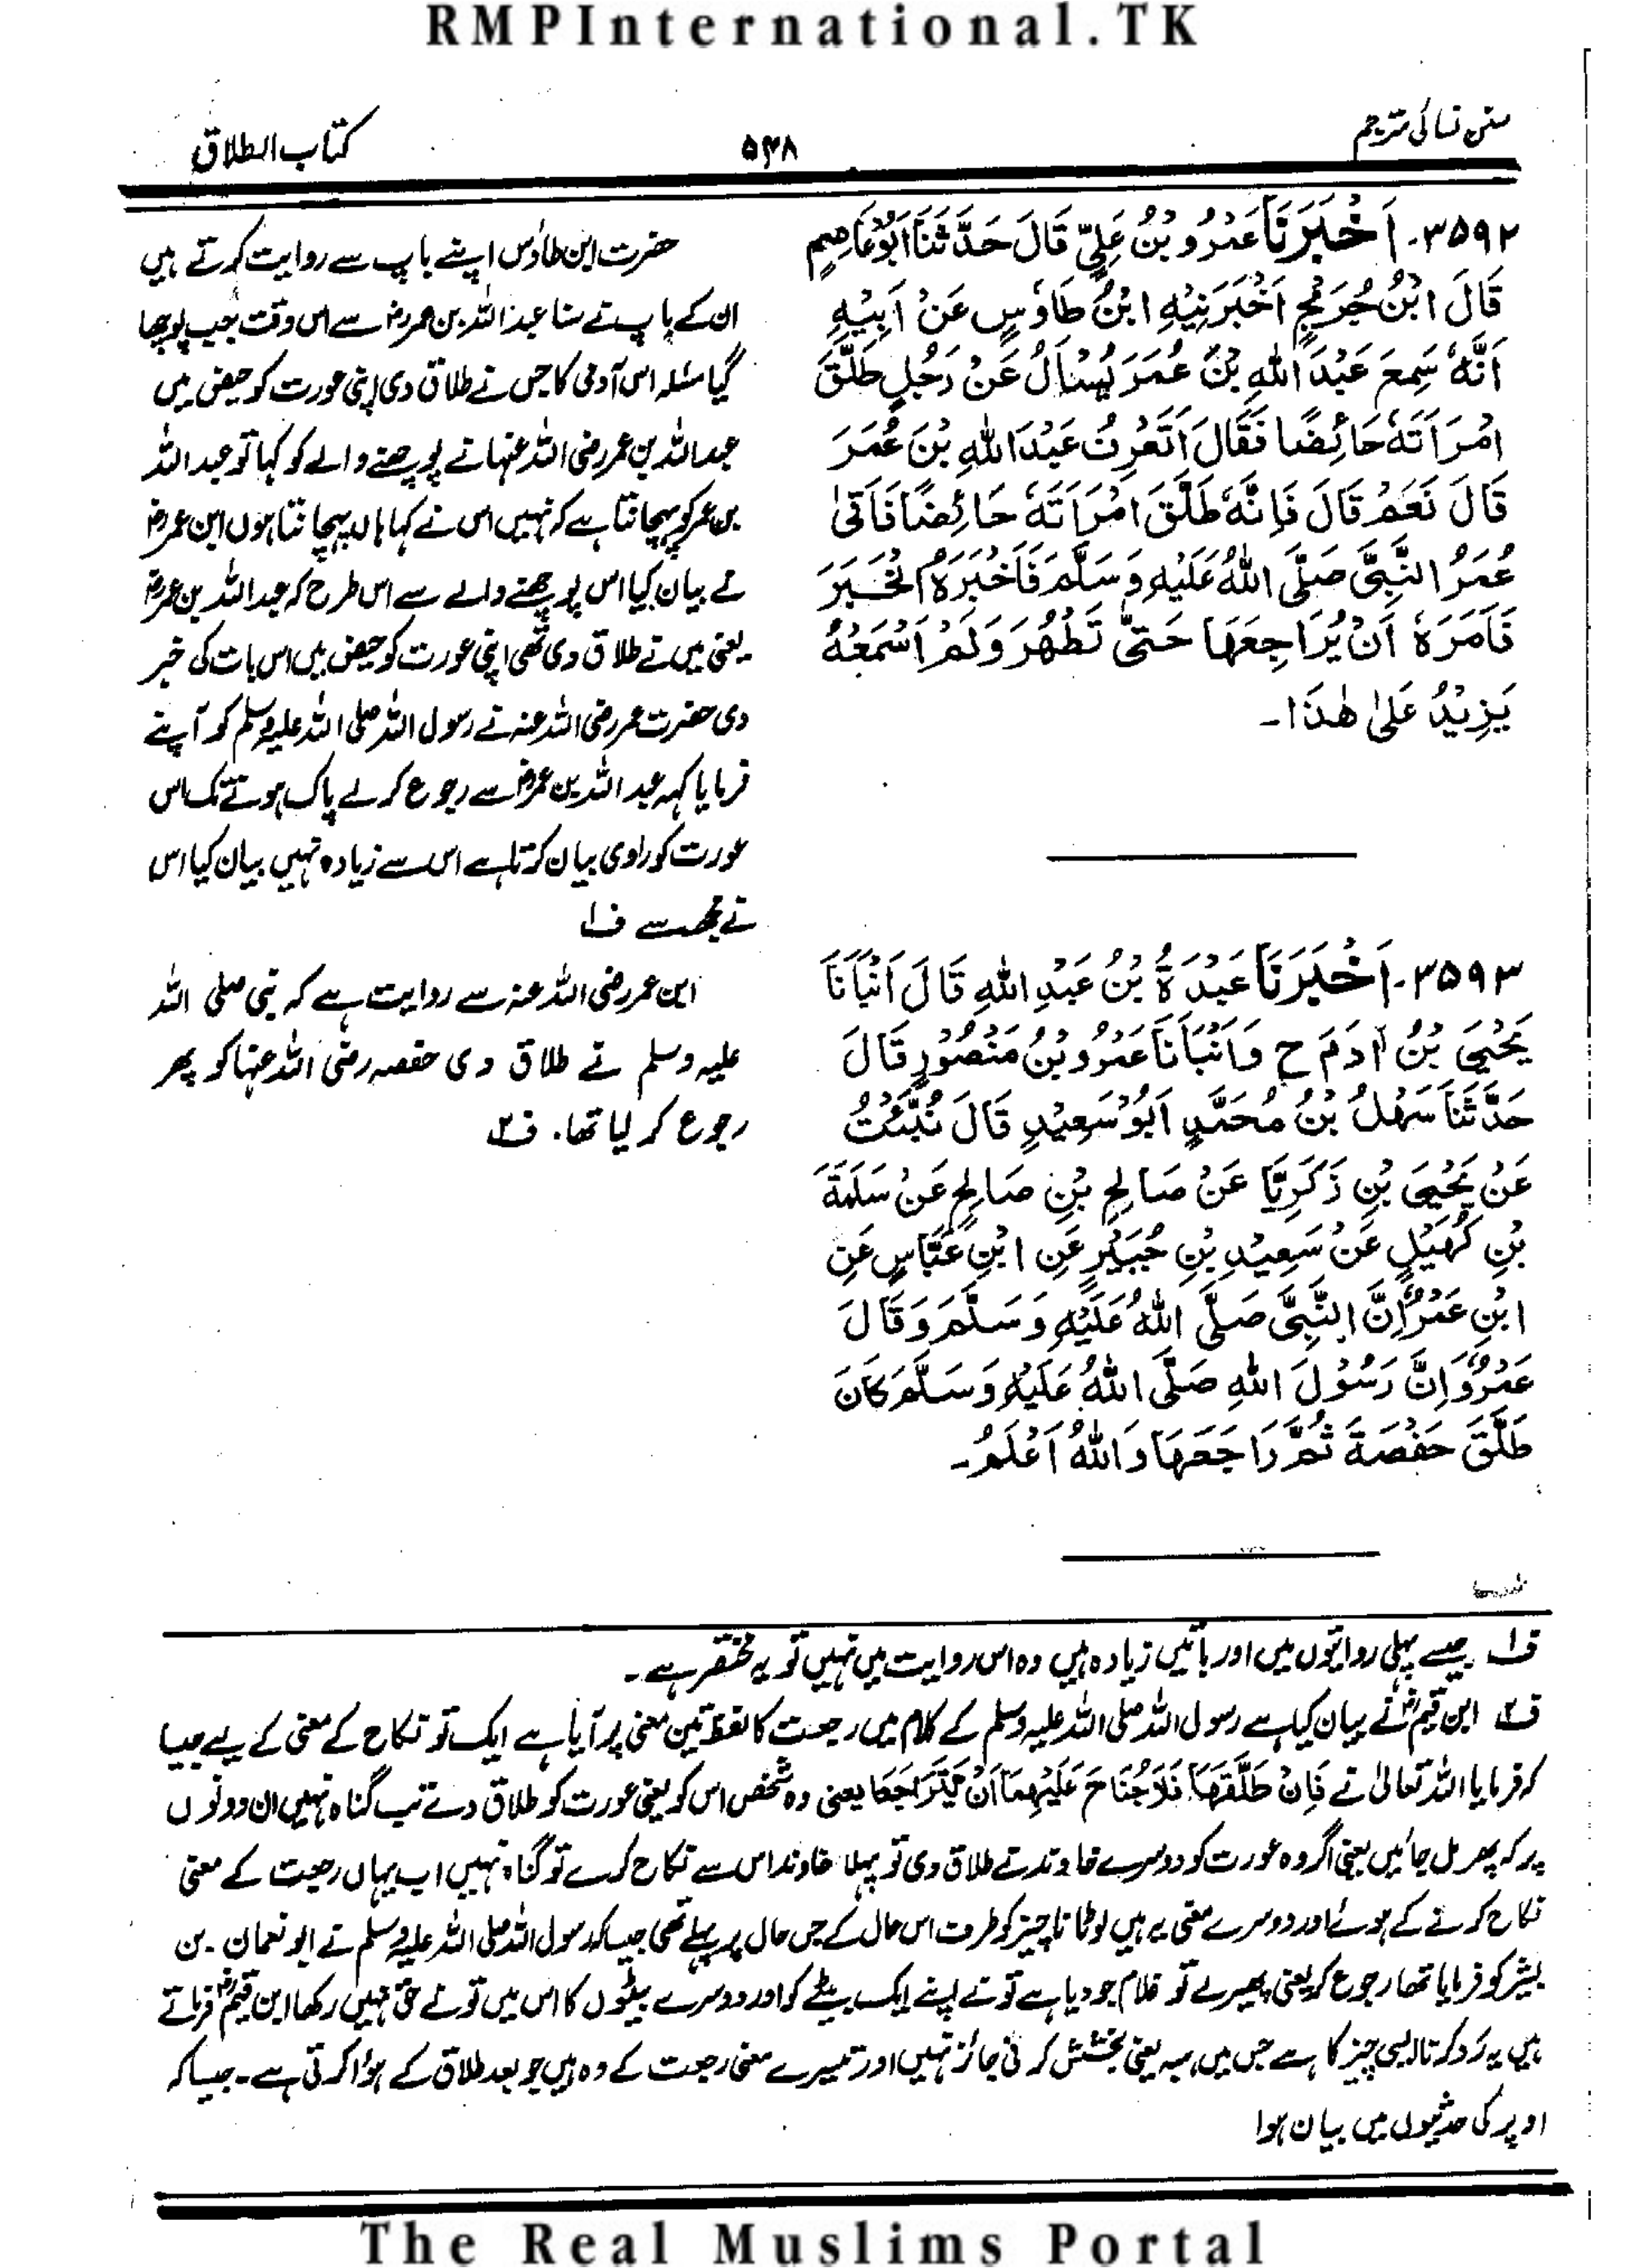 RMPInternational.TK
سنن نسائی مترجم
۵۴۸
کتاب الطلاق
۳۵۹۲۔ اَخْبَرَنَا عَمْرُو بْنُ عَلِيٍّ قَالَ حَدَّثَنَا اَبُوْعَاصِمٍ
قَالَ ابْنُ جُرَيْجٍ اَخْبَرَنِيْهِ ابْنُ طَاوٗسٍ عَنْ اَبِيْهِ
اَنَّهٗ سَمِعَ عَبْدَ اللهِ بْنَ عُمَرَ يُسْاَلُ عَنْ رَجُلٍ طَلَّقَ
امْرَاَتَهٗ حَائِضًا فَقَالَ اَتَعْرِفُ عَبْدَ اللهِ بْنَ عُمَرَ
قَالَ نَعَمْ قَالَ فَاِنَّهٗ طَلَّقَ امْرَاَتَهٗ حَائِضًا فَاَتٰى
عُمَرُ النَّبِيَّ صَلَّى اللهُ عَلَيْهِ وَسَلَّمَ فَاَخْبَرَهُ الْخَبَرَ
فَاَمَرَهٗ اَنْ يُّرَاجِعَهَا حَتّٰى تَطْهُرَ وَلَمْ اَسْمَعْهُ
يَزِيْدُ عَلٰى هٰذَا۔
حضرت ابن طاؤس اپنے باپ سے روایت کرتے ہیں
ان کے باپ نے سنا عبد اللہ بن عمرؓ سے اس وقت جب پوچھا
گیا مسئلہ اس آدمی کا جس نے طلاق دی اپنی عورت کو حیض میں
عبداللہ بن عمر رضی اللہ عنہما نے پوچھنے والے کو کہا تو عبد اللہ
بن عمر کو پہچانتا ہے کہ نہیں اس نے کہا ہاں پہچانتا ہوں ابن عمرؓ
نے بیان کیا اس پوچھنے والے سے اس طرح کہ عبد اللہ بن عمرؓ
یعنی میں نے طلاق دی تھی اپنی عورت کو حیض میں اس بات کی خبر
دی حضرت عمر رضی اللہ عنہ نے رسول اللہ صلی اللہ علیہ وسلم کو آپ نے
فرمایا کہہ عبد اللہ بن عمرؓ سے رجوع کر لے پاک ہوتے تک اس
عورت کو راوی بیان کرتا ہے اس سے زیادہ نہیں بیان کیا اس
نے مجھ سے ف۱
۳۵۹۳۔ اَخْبَرَنَا عَبْدَةُ بْنُ عَبْدِ اللهِ قَالَ اَنْبَاَنَا
يَحْيَى بْنُ اٰدَمَ ح وَاَنْبَاَنَا عَمْرُو بْنُ مَنْصُوْرٍ قَالَ
حَدَّثَنَا سَهْلُ بْنُ مُحَمَّدٍ اَبُوْ سَعِيْدٍ قَالَ نُبِّئْتُ
عَنْ يَحْيَى بْنِ زَكَرِيَّا عَنْ صَالِحِ بْنِ صَالِحٍ عَنْ سَلَمَةَ
بْنِ كُهَيْلٍ عَنْ سَعِيْدِ بْنِ جُبَيْرٍ عَنِ ابْنِ عَبَّاسٍ عَنِ
ابْنِ عُمَرَ اَنَّ النَّبِيَّ صَلَّى اللهُ عَلَيْهِ وَسَلَّمَ وَقَالَ
عَمْرٌو اِنَّ رَسُوْلَ اللهِ صَلَّى اللهُ عَلَيْهِ وَسَلَّمَ كَانَ
طَلَّقَ حَفْصَةَ ثُمَّ رَاجَعَهَا وَاللهُ اَعْلَمُ۔
ابن عمر رضی اللہ عنہ سے روایت ہے کہ نبی صلی اللہ
علیہ وسلم نے طلاق دی حفصہ رضی اللہ عنہا کو پھر
رجوع کر لیا تھا۔ ف۲
ف۱ جیسے پہلی روایتوں میں اور باتیں زیادہ ہیں وہ اس روایت میں نہیں تو یہ مختصر ہے۔
ف۲ ابن قیمؒ نے بیان کیا ہے رسول اللہ صلی اللہ علیہ وسلم کے کلام میں رجعت کا لفظ تین معنی پر آیا ہے ایک تو نکاح کے معنی کے لیے جیسا
کہ فرمایا اللہ تعالیٰ نے فَاِنْ طَلَّقَهَا فَلَا جُنَاحَ عَلَيْهِمَا اَنْ يَّتَرَاجَعَا یعنی وہ شخص اس کو یعنی عورت کو طلاق دے تب گناہ نہیں ان دونوں
پر کہ پھر مل جائیں یعنی اگر وہ عورت کو دوسرے خاوند نے طلاق دی تو پہلا خاوند اس سے نکاح کرے تو گناہ نہیں اب یہاں رجعت کے معنی
نکاح کرنے کے ہوئے اور دوسرے معنی یہ ہیں لوٹانا چیز کو طرف اس حال کے جس حال پر پہلے تھی جیسا کہ رسول اللہ صلی اللہ علیہ وسلم نے ابو نعمان بن
بشر کو فرمایا تھا رجوع کر یعنی پھیر لے تو غلام جو دیا ہے تو نے اپنے ایک بیٹے کو اور دوسرے بیٹوں کا اس میں تو نے حق نہیں رکھا ابن قیمؒ فرماتے
ہیں یہ رد کرنا ایسی چیز کا ہے جس میں ہبہ یعنی بخشش کرنی جائز نہیں اور تیسرے معنی رجعت کے وہ ہیں جو بعد طلاق کے ہوا کرتی ہے۔ جیسا کہ
اوپر کی حدیثوں میں بیان ہوا
The Real Muslims Portal